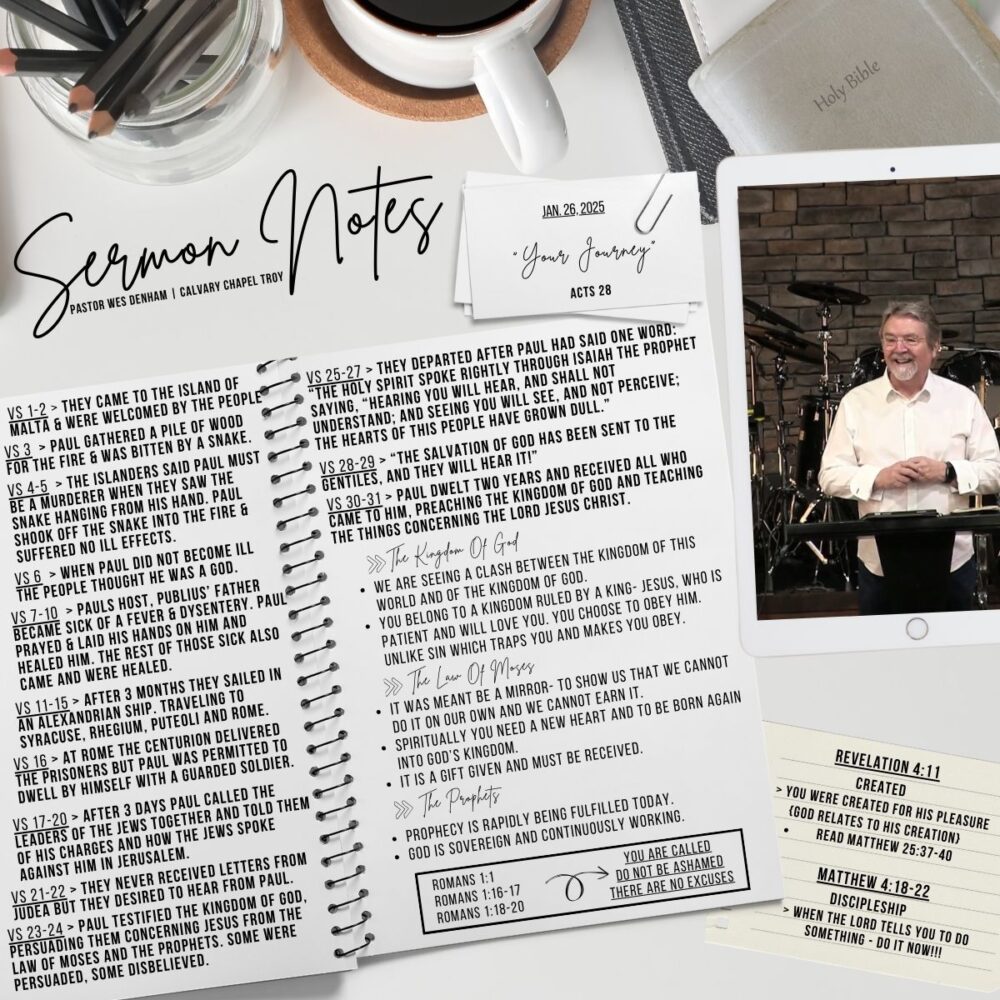 Holy Bible
Sermon Notes
PASTOR WES DENHAM | CALVARY CHAPEL TROY
JAN. 26, 2025
"Your Journey"
ACTS 28
VS 1-2 > THEY CAME TO THE ISLAND OF
MALTA & WERE WELCOMED BY THE PEOPLE
VS 3 > PAUL GATHERED A PILE OF WOOD
FOR THE FIRE & WAS BITTEN BY A SNAKE.
VS 4-5 > THE ISLANDERS SAID PAUL MUST
BE A MURDERER WHEN THEY SAW THE
SNAKE HANGING FROM HIS HAND. PAUL
SHOOK OFF THE SNAKE INTO THE FIRE &
SUFFERED NO ILL EFFECTS.
VS 6 > WHEN PAUL DID NOT BECOME ILL
THE PEOPLE THOUGHT HE WAS A GOD.
VS 7-10 > PAULS HOST, PUBLIUS' FATHER
BECAME SICK OF A FEVER & DYSENTERY. PAUL
PRAYED & LAID HIS HANDS ON HIM AND
HEALED HIM. THE REST OF THOSE SICK ALSO
CAME AND WERE HEALED.
VS 11-15 > AFTER 3 MONTHS THEY SAILED IN
AN ALEXANDRIAN SHIP. TRAVELING TO
SYRACUSE, RHEGIUM, PUTEOLI AND ROME.
VS 16 > AT ROME THE CENTURION DELIVERED
THE PRISONERS BUT PAUL WAS PERMITTED TO
DWELL BY HIMSELF WITH A GUARDED SOLDIER.
VS 17-20 > AFTER 3 DAYS PAUL CALLED THE
LEADERS OF THE JEWS TOGETHER AND TOLD THEM
OF HIS CHARGES AND HOW THE JEWS SPOKE
AGAINST HIM IN JERUSALEM.
VS 21-22 > THEY NEVER RECEIVED LETTERS FROM
JUDEA BUT THEY DESIRED TO HEAR FROM PAUL.
VS 23-24 > PAUL TESTIFIED THE KINGDOM OF GOD,
PERSUADING THEM CONCERNING JESUS FROM THE
LAW OF MOSES AND THE PROPHETS. SOME WERE
PERSUADED, SOME DISBELIEVED.
VS 25-27 > THEY DEPARTED AFTER PAUL HAD SAID ONE WORD:
"THE HOLY SPIRIT SPOKE RIGHTLY THROUGH ISAIAH THE PROPHET
SAYING, "HEARING YOU WILL HEAR, AND SHALL NOT
UNDERSTAND; AND SEEING YOU WILL SEE, AND NOT PERCEIVE;
THE HEARTS OF THIS PEOPLE HAVE GROWN DULL."
VS 28-29 > "THE SALVATION OF GOD HAS BEEN SENT TO THE
GENTILES, AND THEY WILL HEAR IT!"
VS 30-31 > PAUL DWELT TWO YEARS AND RECEIVED ALL WHO
CAME TO HIM, PREACHING THE KINGDOM OF GOD AND TEACHING
THE THINGS CONCERNING THE LORD JESUS CHRIST.
The Kingdom Of God
• WE ARE SEEING A CLASH BETWEEN THE KINGDOM OF THIS
WORLD AND OF THE KINGDOM OF GOD.
• YOU BELONG TO A KINGDOM RULED BY A KING- JESUS, WHO IS
PATIENT AND WILL LOVE YOU. YOU CHOOSE TO OBEY HIM.
UNLIKE SIN WHICH TRAPS YOU AND MAKES YOU OBEY.
The Law Of Moses
• IT WAS MEANT BE A MIRROR- TO SHOW US THAT WE CANNOT
DO IT ON OUR OWN AND WE CANNOT EARN IT.
• SPIRITUALLY YOU NEED A NEW HEART AND TO BE BORN AGAIN
INTO GOD'S KINGDOM.
• IT IS A GIFT GIVEN AND MUST BE RECEIVED.
The Prophets
• PROPHECY IS RAPIDLY BEING FULFILLED TODAY.
• GOD IS SOVEREIGN AND CONTINUOUSLY WORKING.
ROMANS 1:1
ROMANS 1:16-17
ROMANS 1:18-20
YOU ARE CALLED
DO NOT BE ASHAMED
THERE ARE NO EXCUSES
REVELATION 4:11
CREATED
> YOU WERE CREATED FOR HIS PLEASURE
(GOD RELATES TO HIS CREATION)
• READ MATTHEW 25:37-40
MATTHEW 4:18-22
DISCIPLESHIP
> WHEN THE LORD TELLS YOU TO DO
SOMETHING - DO IT NOW!!!